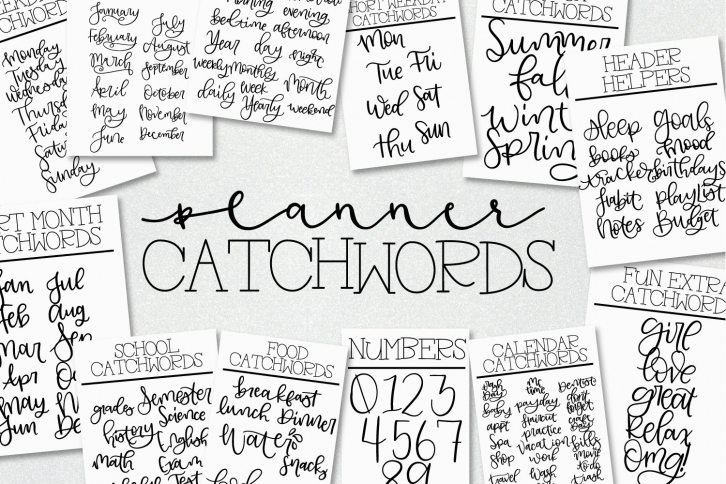 Monday
Tuesday
Wednesday
Saturday
Sunday
January July
February August
March September
April October
May November
June December
morning evening
bedtime afternoon
Year day night
weekly monthly Month
daily week weekend
Yearly
SHORT WEEKDAY
CATCHWORDS
Mon
Tue Fri
Wed Sat
Thu Sun
CATCHWORDS
Summer
fall
Spring
HEADER
HELPERS
Sleep Goals
books mood
tracker birthdays
habit playlist
Notes Budget
planner
CATCHWORDS
MONTH
Jan Jul
Feb Aug
Mar Sep
Apr
May
Jun
SCHOOL
CATCHWORDS
grades Semester
history Science
math English
Exam
Test
FOOD
CATCHWORDS
breakfast
lunch Dinner
Water
Snacks
food
NUMBERS
0123
4567
89
CALENDAR
CATCHWORDS
me time Dentist
baby payday don't forget
appt haircut
spa practice
shop vacation bills
work movie
travel Wash to do
trash
FUN EXTRA
girl
love
great
Relax
Omg!